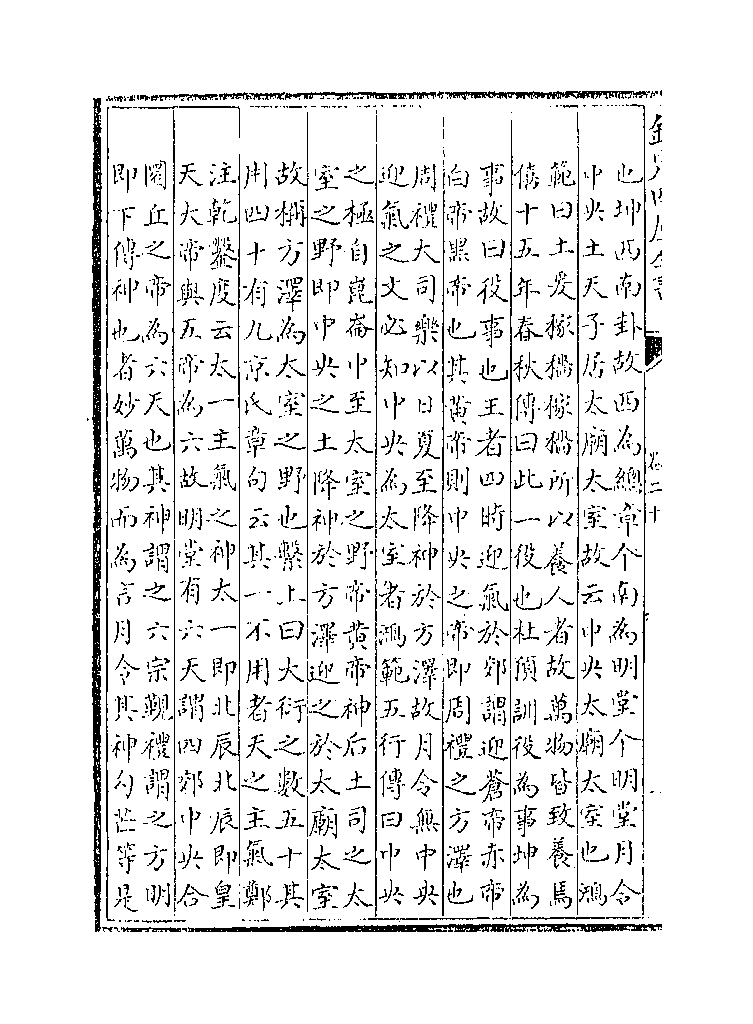 欽定四庫全書
卷二十
也坤西南卦故西為總章个南為明堂个明堂月令
中央土天子居太廟太室故云中央太廟太室也鴻
範曰土爰稼穡稼穡所以養人者故萬物皆致養焉
僖十五年春秋傳曰此一役也杜預訓役為事坤為
事故曰役事也王者四時迎氣於郊謂迎蒼帝赤帝
白帝黑帝也其黄帝則中央之帝即周禮之方澤也
周禮大司樂以日夏至降神於方澤故月令無中央
迎氣之文必知中央為太室者鴻範五行傳曰中央
之極自崑崙中至太室之野帝黄帝神后土司之太
室之野即中央之土降神於方澤迎之於太廟太室
故稱方澤為太室之野也繫上曰大衍之數五十其
用四十有九京氏章句云其一不用者天之主氣鄭
注乾鑿度云太一主氣之神太一即北辰北辰即皇
天大帝與五帝為六故明堂有六天謂四郊中央合
圜丘之帝為六天也其神謂之六宗覲禮謂之方明
即下傳神也者妙萬物而為言月令其神勾芒等是